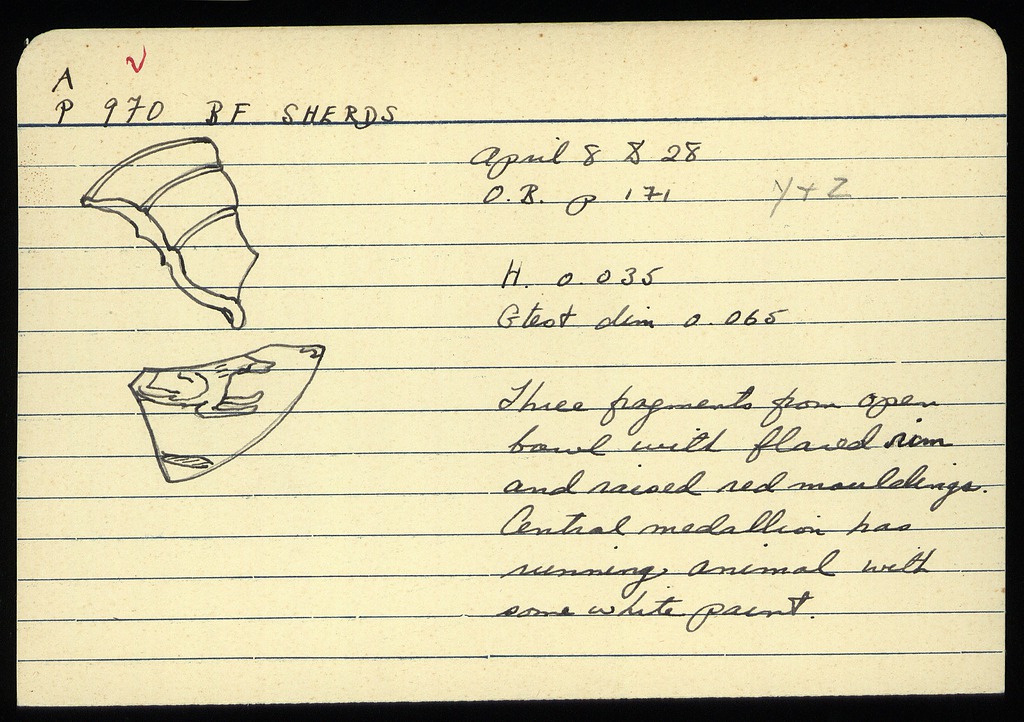 A
P 970 BF SHERDS
April 8 & 28
O.B. p 171
Y + Z
H. 0.035
Gtest dim 0.065
Three fragments from open
bowl with flared rim
and raised red mouldings.
Central medallion has
running animal with
some white paint.